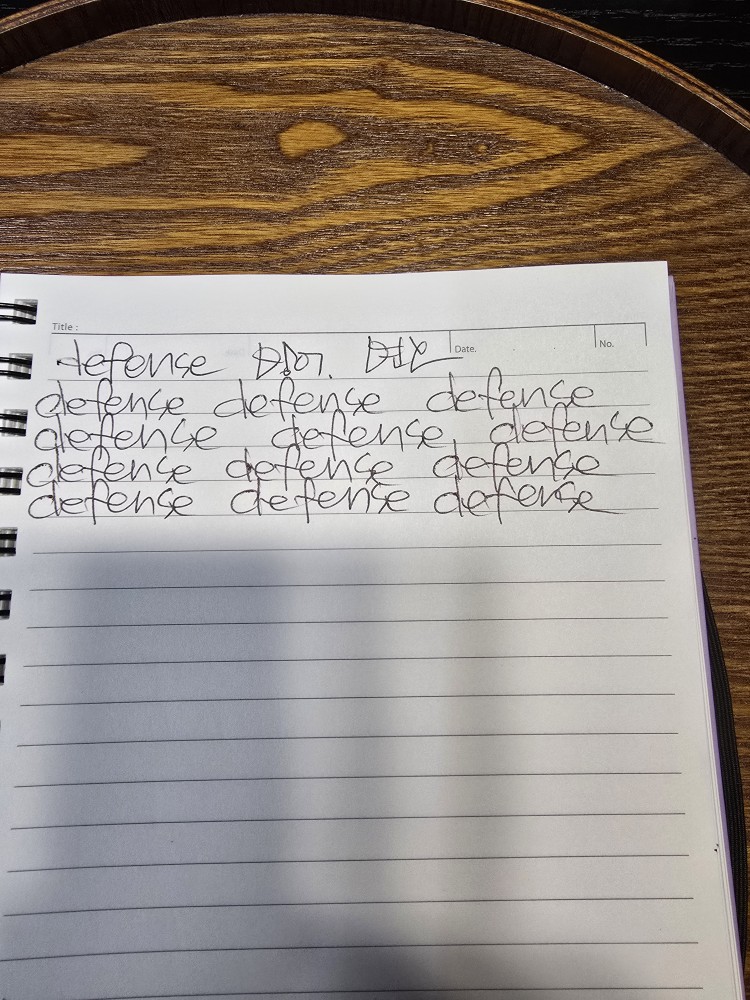 Title :
defense
Date.
No.
defense defense defense
defense defense defense
defense defense defense
defense defense defense